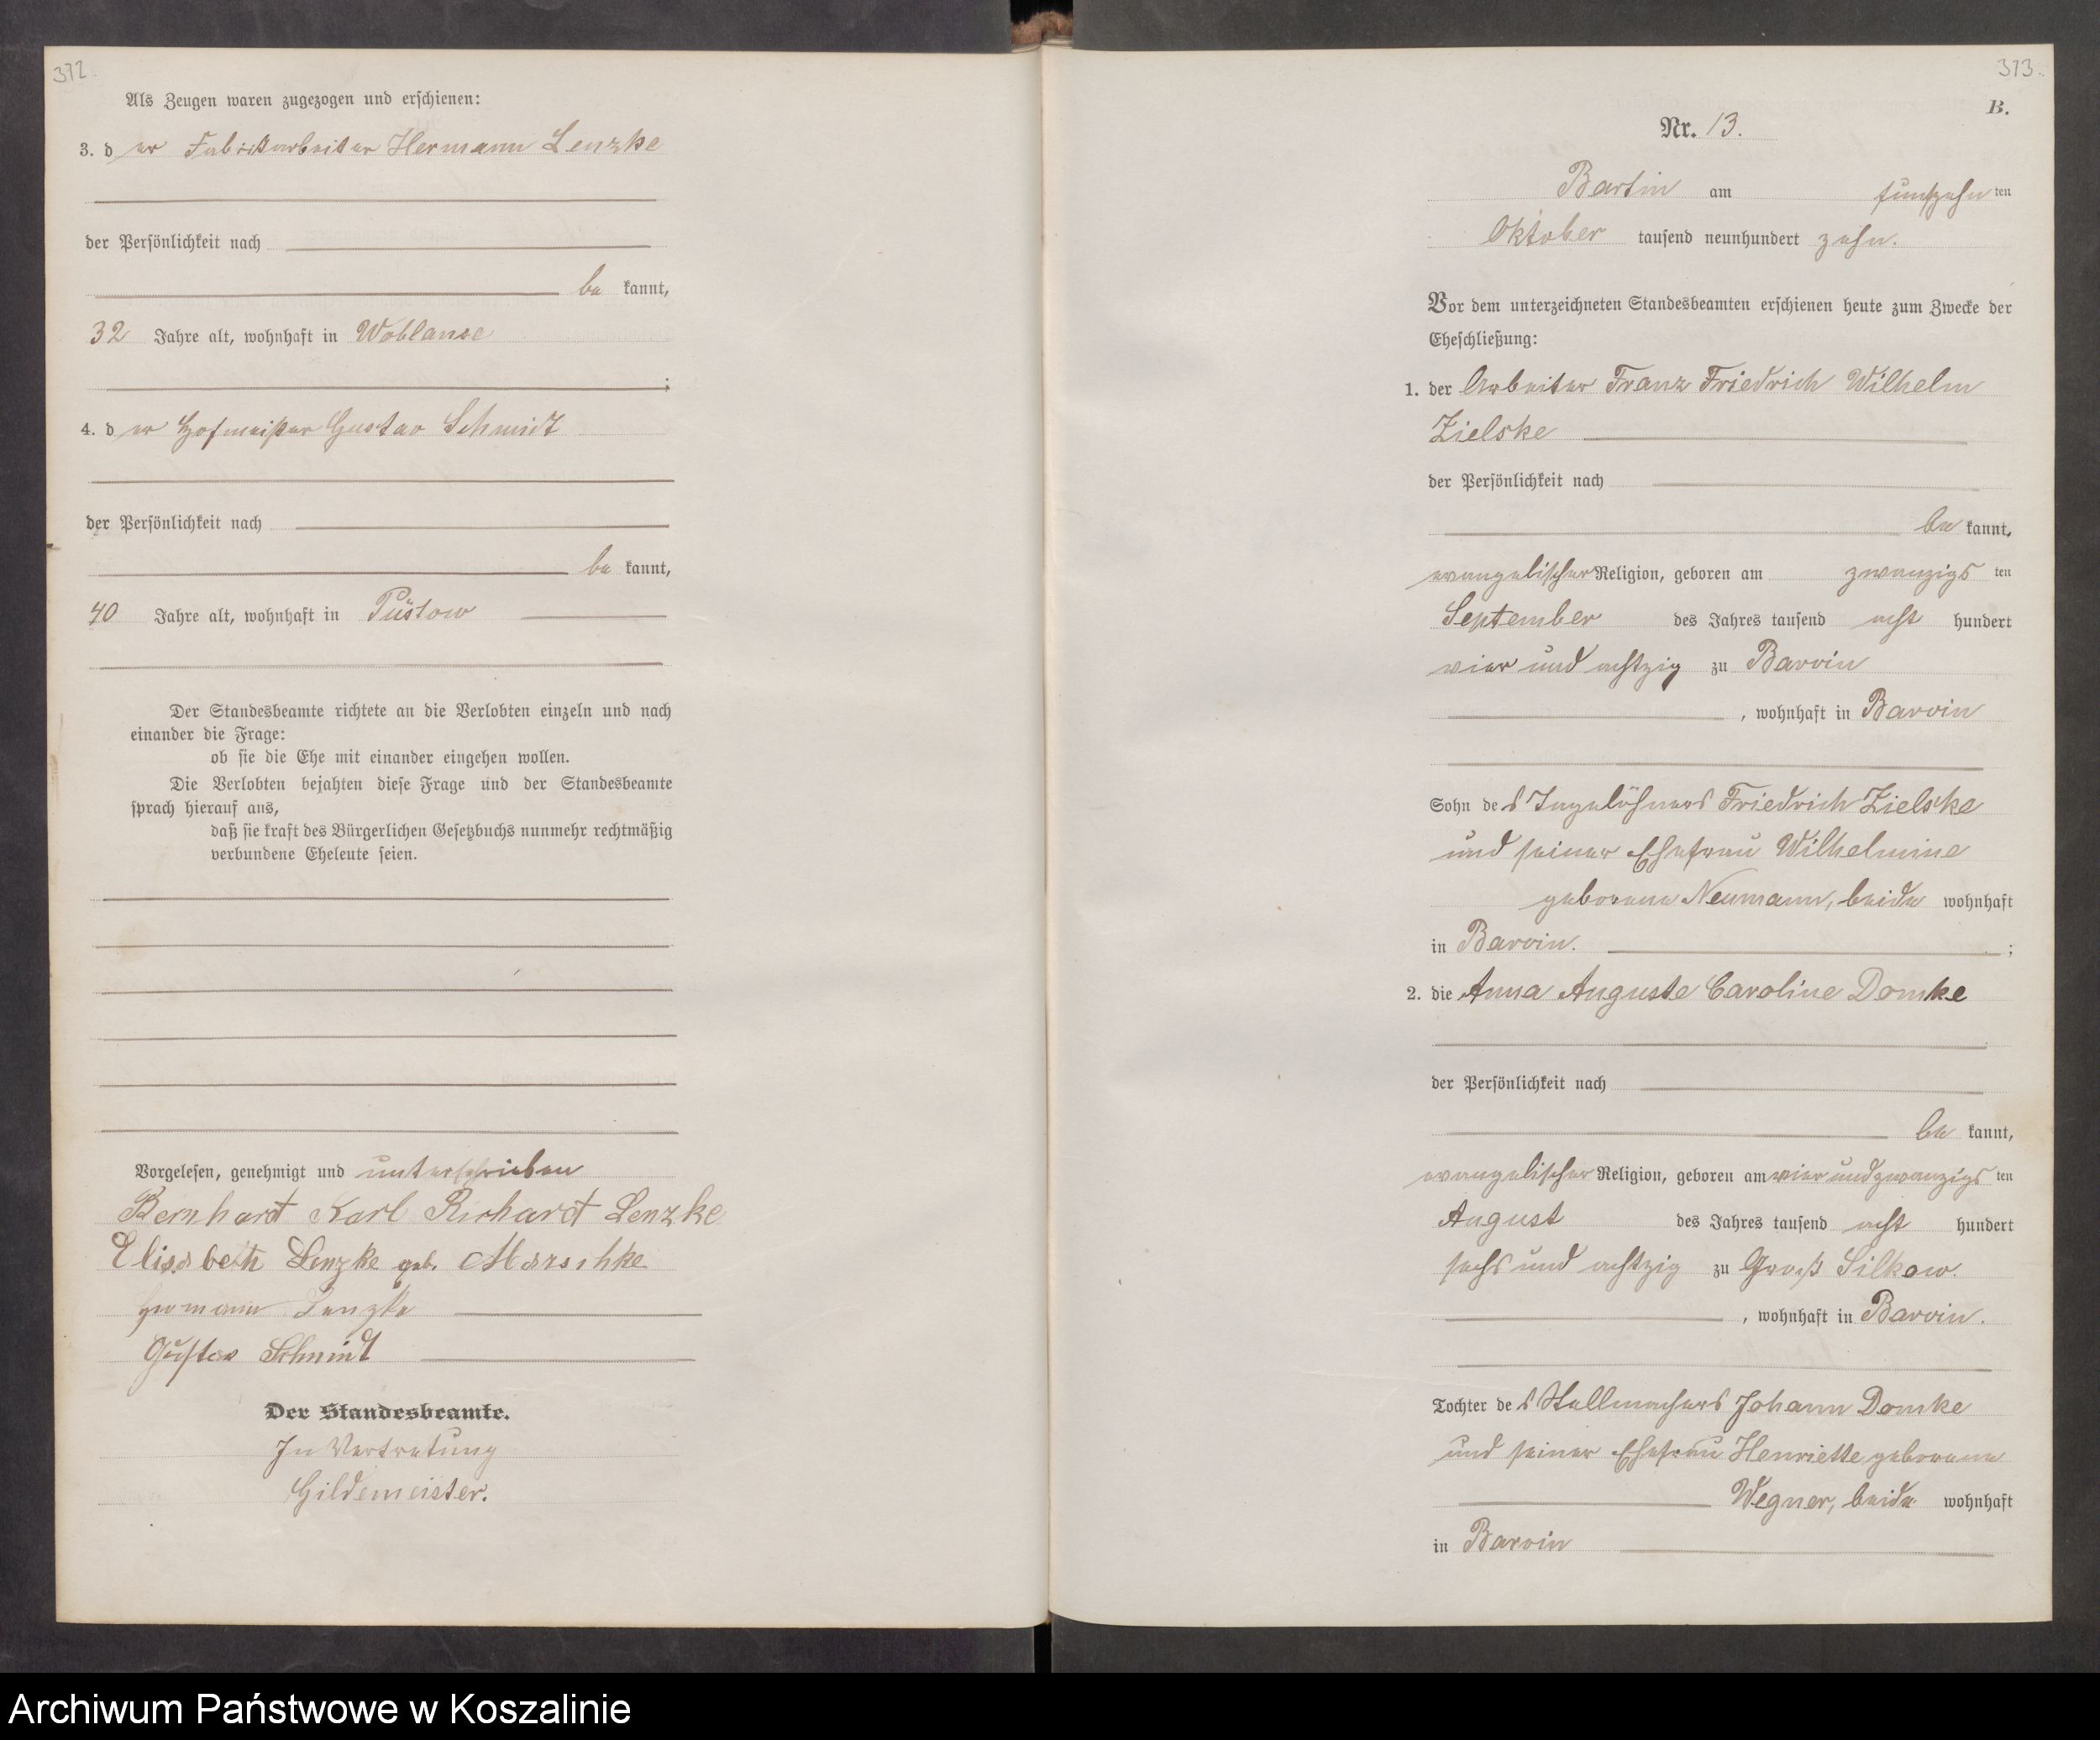 372.
Als Zeugen waren zugezogen und erschienen:
3. der Fabrikarbeiter Hermann Lenzke
der Persönlichkeit nach
be kannt,
32 Jahre alt, wohnhaft in Woblanse
;
4. der Hofmeister Gustav Schmidt
der Persönlichkeit nach
be kannt,
40 Jahre alt, wohnhaft in Püstow
Der Standesbeamte richtete an die Verlobten einzeln und nach
einander die Frage:
ob sie die Ehe mit einander eingehen wollen.
Die Verlobten bejahten diese Frage und der Standesbeamte
sprach hierauf aus,
daß sie kraft des Bürgerlichen Gesetzbuchs nunmehr rechtmäßig
verbundene Eheleute seien.
Vorgelesen, genehmigt und unterschrieben
Bernhardt Karl Richardt Lenzke
Elisabeth Lenzke geb. Marschke
Hermann Lenzke
Gustav Schmidt
Der Standesbeamte.
In Vertretung
Gildemeister.
373.
B.
Nr. 13.
Bartin am fünfzehnten
Oktober tausend neunhundert zehn.
Vor dem unterzeichneten Standesbeamten erschienen heute zum Zwecke der
Eheschließung:
1. der Arbeiter Franz Friedrich Wilhelm
Zielske
der Persönlichkeit nach
be kannt,
evangelischer Religion, geboren am zwanzigsten
September des Jahres tausend acht hundert
vier und achtzig zu Barvin
, wohnhaft in Barvin
Sohn des Tagelöhners Friedrich Zielske
und seiner Ehefrau Wilhelmine
geborene Neumann, beide wohnhaft
in Barvin. ;
2. die Anna Auguste Caroline Domke
der Persönlichkeit nach
be kannt,
evangelischer Religion, geboren am vier und zwanzigsten
August des Jahres tausend acht hundert
sechs und achtzig zu Groß Silkow.
, wohnhaft in Barvin.
Tochter des Stellmachers Johann Domke
und seiner Ehefrau Henriette geborene
Wegner, beide wohnhaft
in Barvin
Archiwum Państwowe w Koszalinie